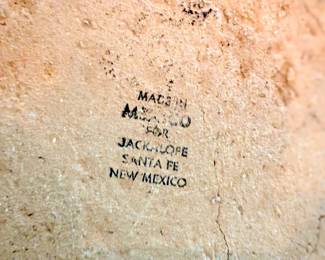 MADE IN
MEXICO
FOR
JACKALOPE
SANTA FE
NEW MEXICO